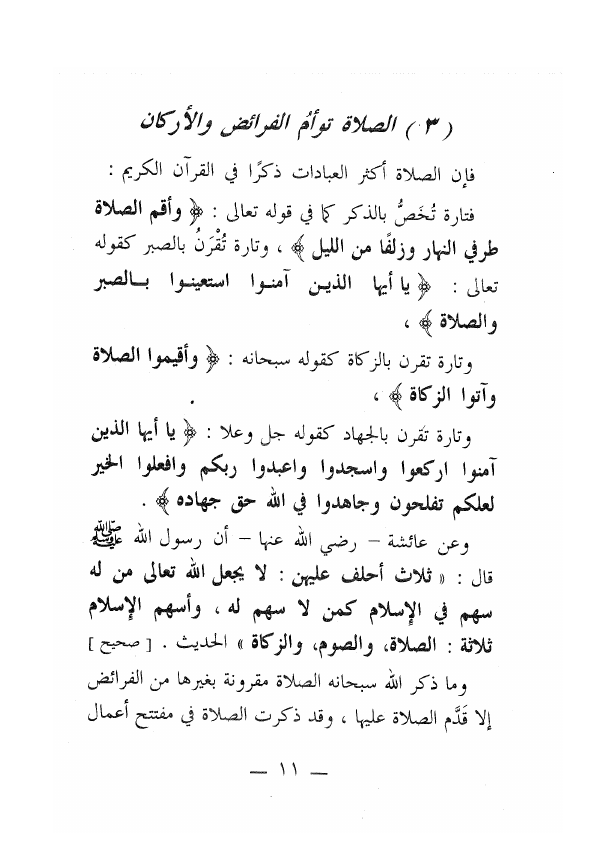 ( ٣ ) الصلاة توأم الفرائض والأركان
فإن الصلاة أكثر العبادات ذكرًا في القرآن الكريم :
فتارة تُخَصُّ بالذكر كما في قوله تعالى : ﴿ وأقم الصلاة
طرفي النهار وزلفًا من الليل ﴾ ، وتارة تُقْرَنُ بالصبر كقوله
تعالى : ﴿ يا أيها الذين آمنوا استعينوا بالصبر
والصلاة ﴾ ،
وتارة تقرن بالزكاة كقوله سبحانه : ﴿ وأقيموا الصلاة
وآتوا الزكاة ﴾ ،
وتارة تقرن بالجهاد كقوله جل وعلا : ﴿ يا أيها الذين
آمنوا اركعوا واسجدوا واعبدوا ربكم وافعلوا الخير
لعلكم تفلحون وجاهدوا في الله حق جهاده ﴾ .
وعن عائشة – رضي الله عنها – أن رسول الله ﷺ
قال : « ثلاث أحلف عليهن : لا يجعل الله تعالى من له
سهم في الإسلام كمن لا سهم له ، وأسهم الإسلام
ثلاثة : الصلاة، والصوم، والزكاة » الحديث . [ صحيح ]
وما ذكر الله سبحانه الصلاة مقرونة بغيرها من الفرائض
إلا قَدَّم الصلاة عليها ، وقد ذكرت الصلاة في مفتتح أعمال
— ١١ —